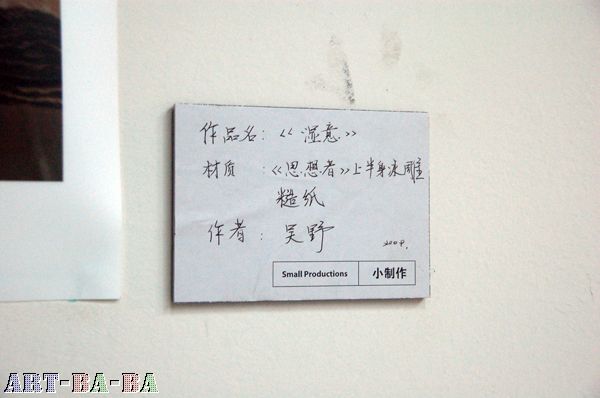 作品名：《湿意》
材质：《思想者》上半身冰雕
糙纸
作者：吴野
Small Productions 小制作
ART-BA-BA